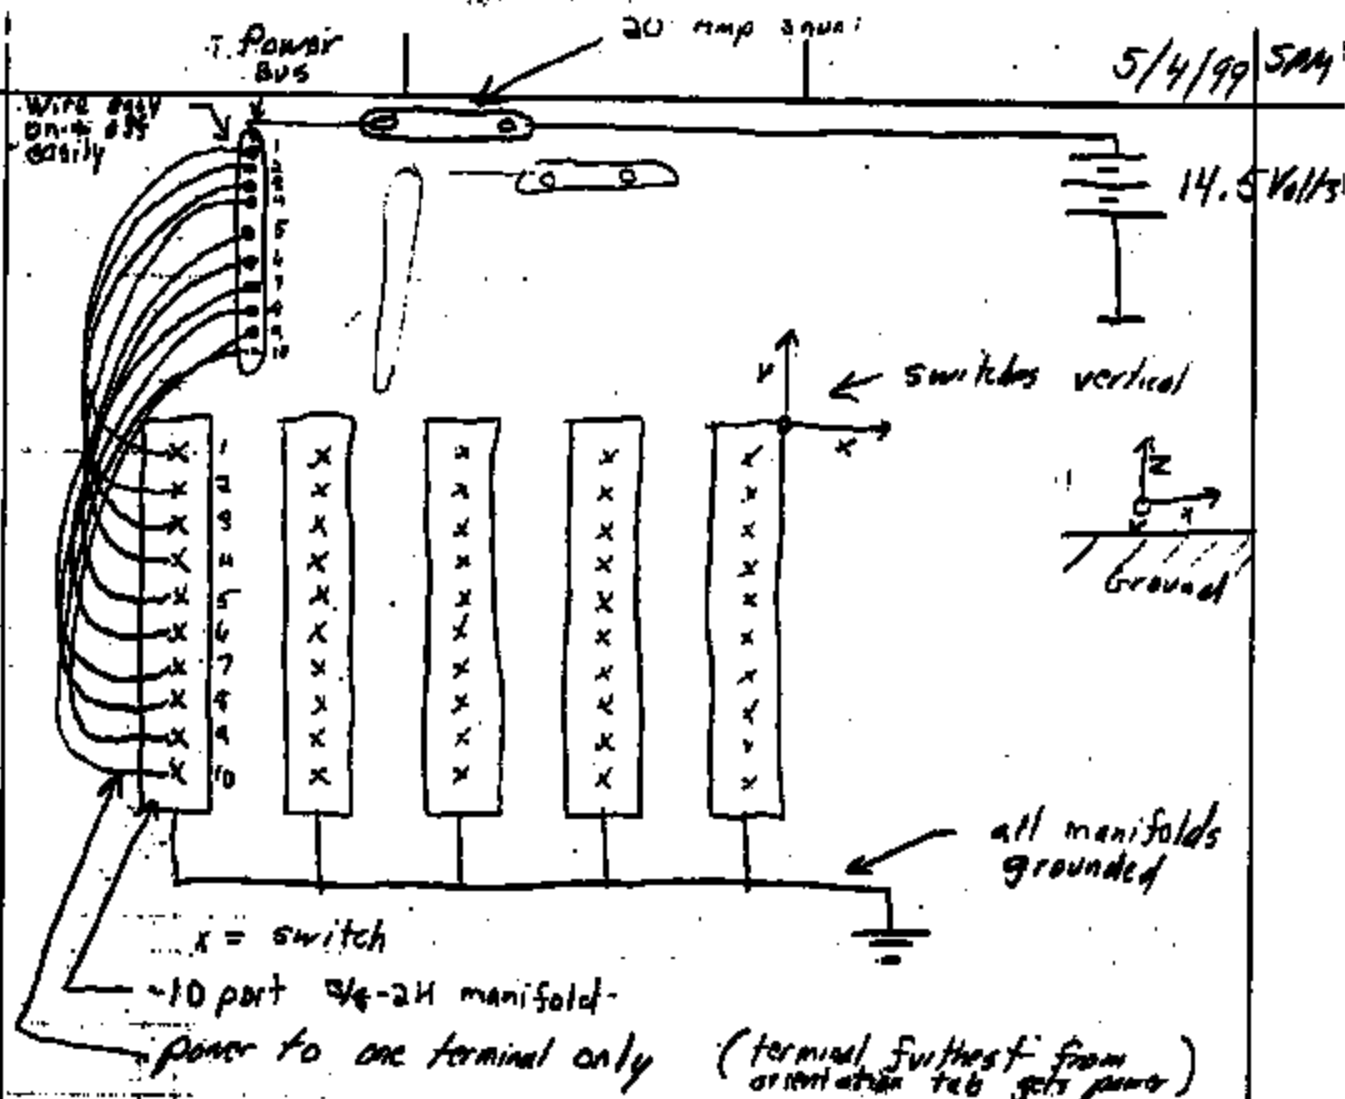 20 Amp shunt
Power
Bus
5/4/99
Wire
on
easily
1
2
3
4
5
6
7
8
9
10
14.5 Volts
switches vertical
Y
X
Z
X
Ground
1
2
3
4
5
6
7
8
9
10
all manifolds
grounded
x = switch
10 port 3/8-24 manifold
power to one terminal only
(terminal furthest from
orientation tab gets power)